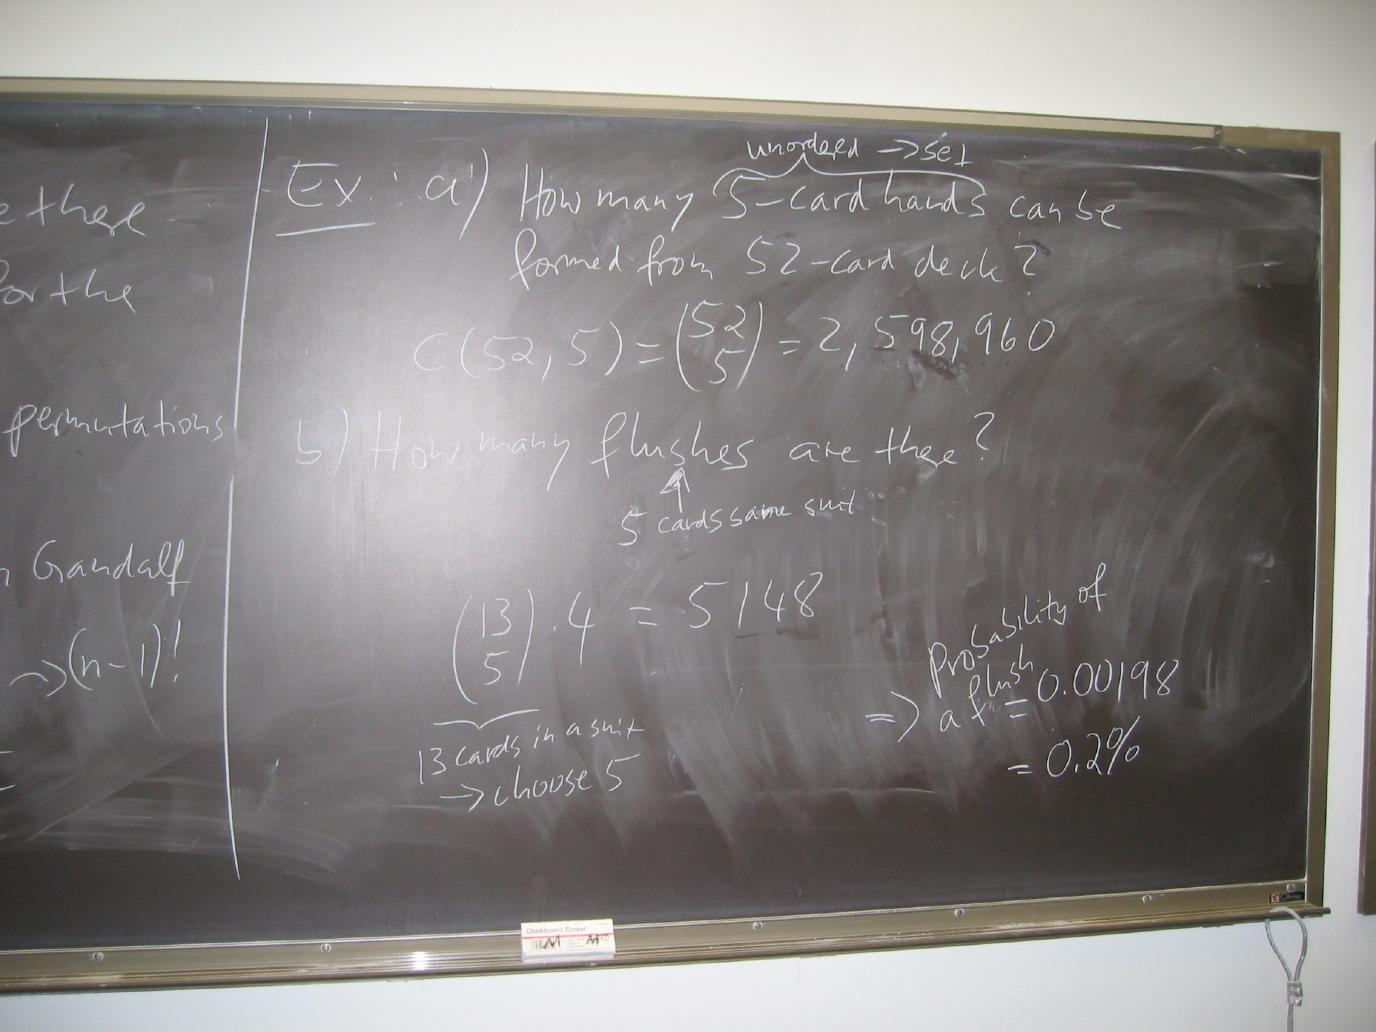 e there
for the
permutations
Gandalf
→(n-1)!
unordered → set
Ex: a) How many 5-card hands can be
formed from 52-card deck?
C(52,5) = (52 5) = 2,598,960
b) How many flushes are there?
5 cards same suit
(13 5) · 4 = 5148
13 cards in a suit
→ choose 5
Probability of
flush
⇒ a f = 0.00198
= 0.2%
Chalkboard Eraser